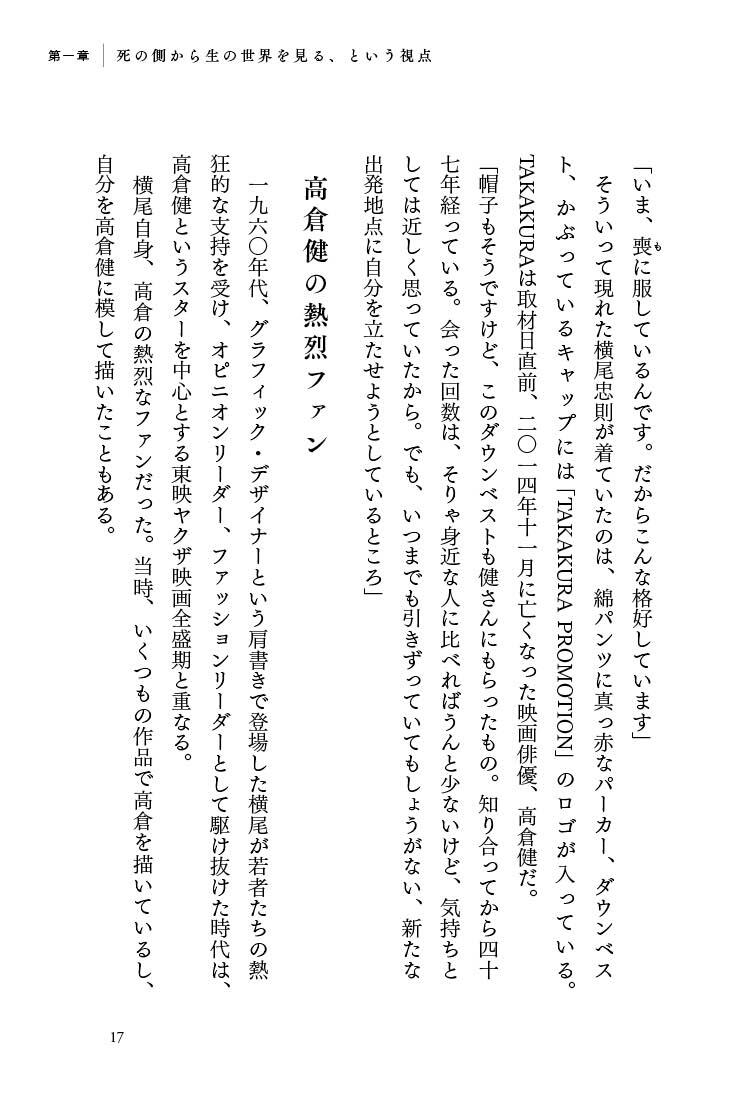 第一章 死の側から生の世界を見る、という視点
「いま、喪に服しているんです。だからこんな格好しています」
そういって現れた横尾忠則が着ていたのは、綿パンツに真っ赤なパーカー、ダウンベス
ト、かぶっているキャップには「TAKAKURA PROMOTION」のロゴが入っている。
TAKAKURAは取材日直前、二〇一四年十一月に亡くなった映画俳優、高倉健だ。
「帽子もそうですけど、このダウンベストも健さんにもらったもの。知り合ってから四十
七年経っている。会った回数は、そりゃ身近な人に比べればうんと少ないけど、気持ちと
しては近しく思っていたから。でも、いつまでも引きずっていてもしょうがない、新たな
出発地点に自分を立たせようとしているところ」
高倉健の熱烈ファン
一九六〇年代、グラフィック・デザイナーという肩書きで登場した横尾が若者たちの熱
狂的な支持を受け、オピニオンリーダー、ファッションリーダーとして駆け抜けた時代は、
高倉健というスターを中心とする東映ヤクザ映画全盛期と重なる。
横尾自身、高倉の熱烈なファンだった。当時、いくつもの作品で高倉を描いているし、
自分を高倉健に模して描いたこともある。
17